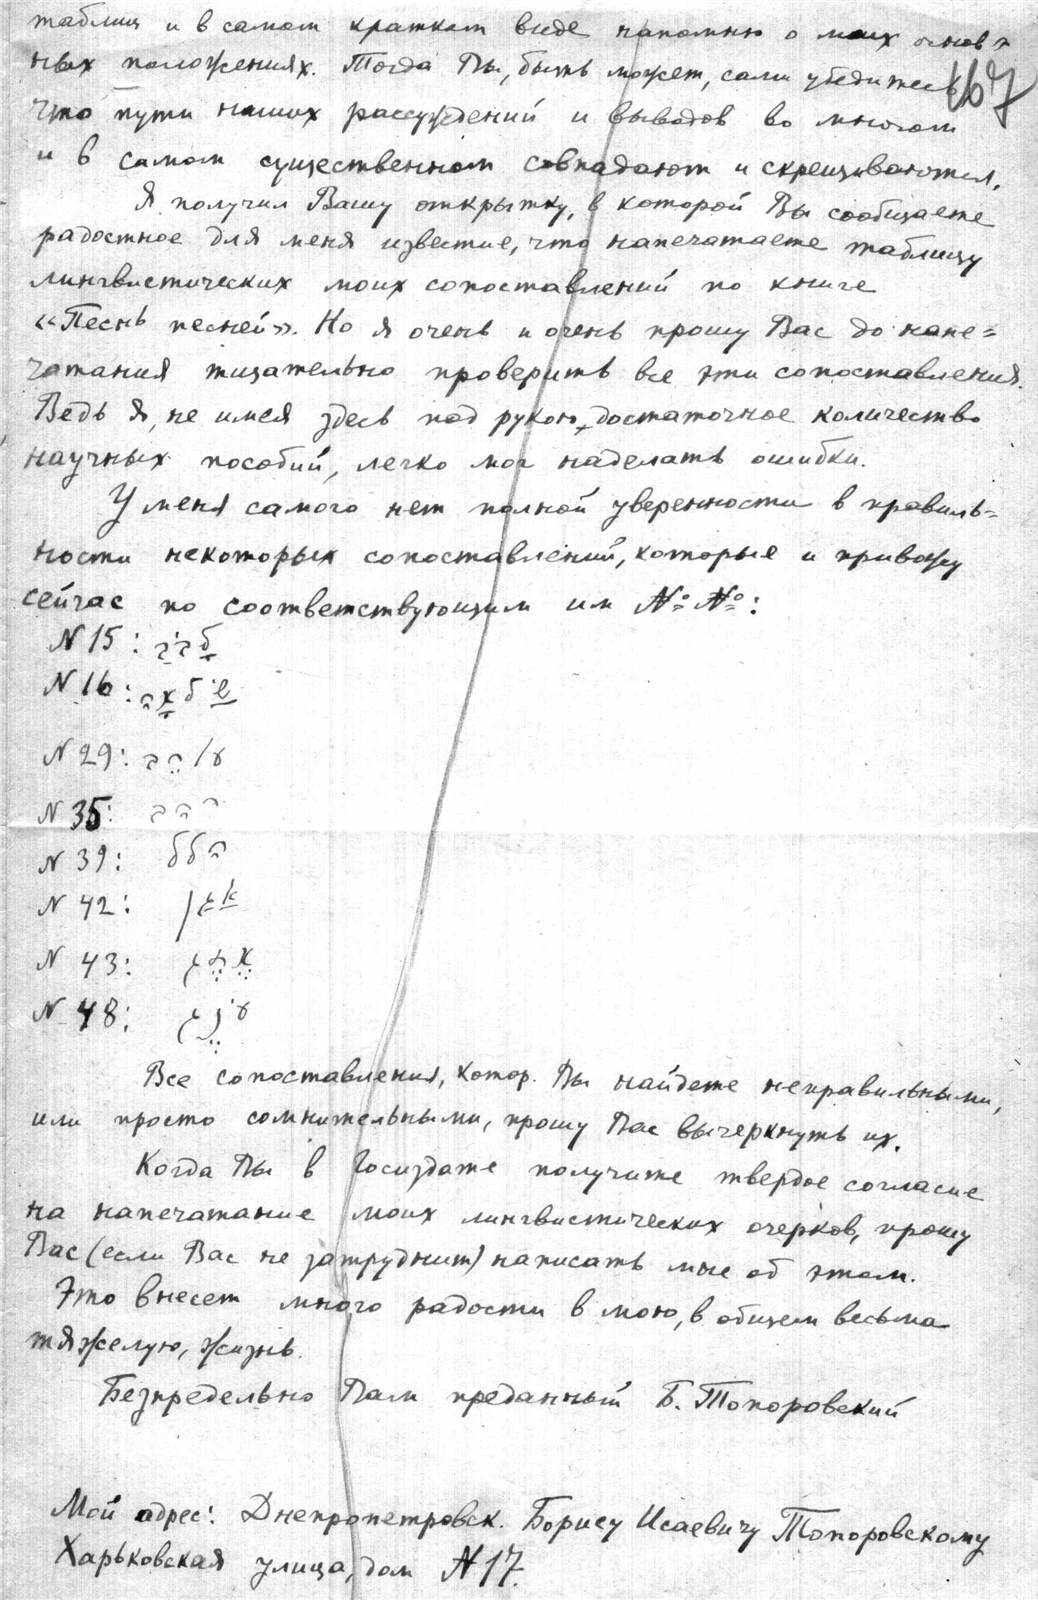 таблиц и в самом кратком виде напомню о моих основ-
ных положениях. Тогда Вы, быть может, сами убедитесь,
167
что пути наших рассуждений и выводов во многом
и в самом существенном совпадают и скрещиваются.
Я получил Вашу открытку, в которой Вы сообщаете
радостное для меня известие, что напечатаете таблицу
лингвистических моих сопоставлений по книге
«Песнь песней». Но я очень и очень прошу Вас до напе=
чатания тщательно проверить все эти сопоставления.
Ведь я, не имея здесь под рукою достаточное количество
научных пособий, легко мог наделать ошибки.
У меня самого нет полной уверенности в правиль=
ности некоторых сопоставлений, которые и привожу
сейчас по соответствующим им №№:
N 15:
N 16:
N 29:
N 35:
N 39: הלל
N 42: אגן
N 43:
N 48:
Все сопоставления, котор. Вы найдете неправильными,
или просто сомнительными, прошу Вас вычеркнуть их.
Когда Вы в Госиздате получите твердое согласие
на напечатание моих лингвистических очерков, прошу
Вас (если Вас не затруднит) написать мне об этом.
Это внесет много радости в мою, в общем весьма
тяжелую, жизнь.
Безпредельно Вам преданный Б. Топоровский
Мой адрес: Днепропетровск. Борису Исаевичу Топоровскому
Харьковская улица, дом N 17.